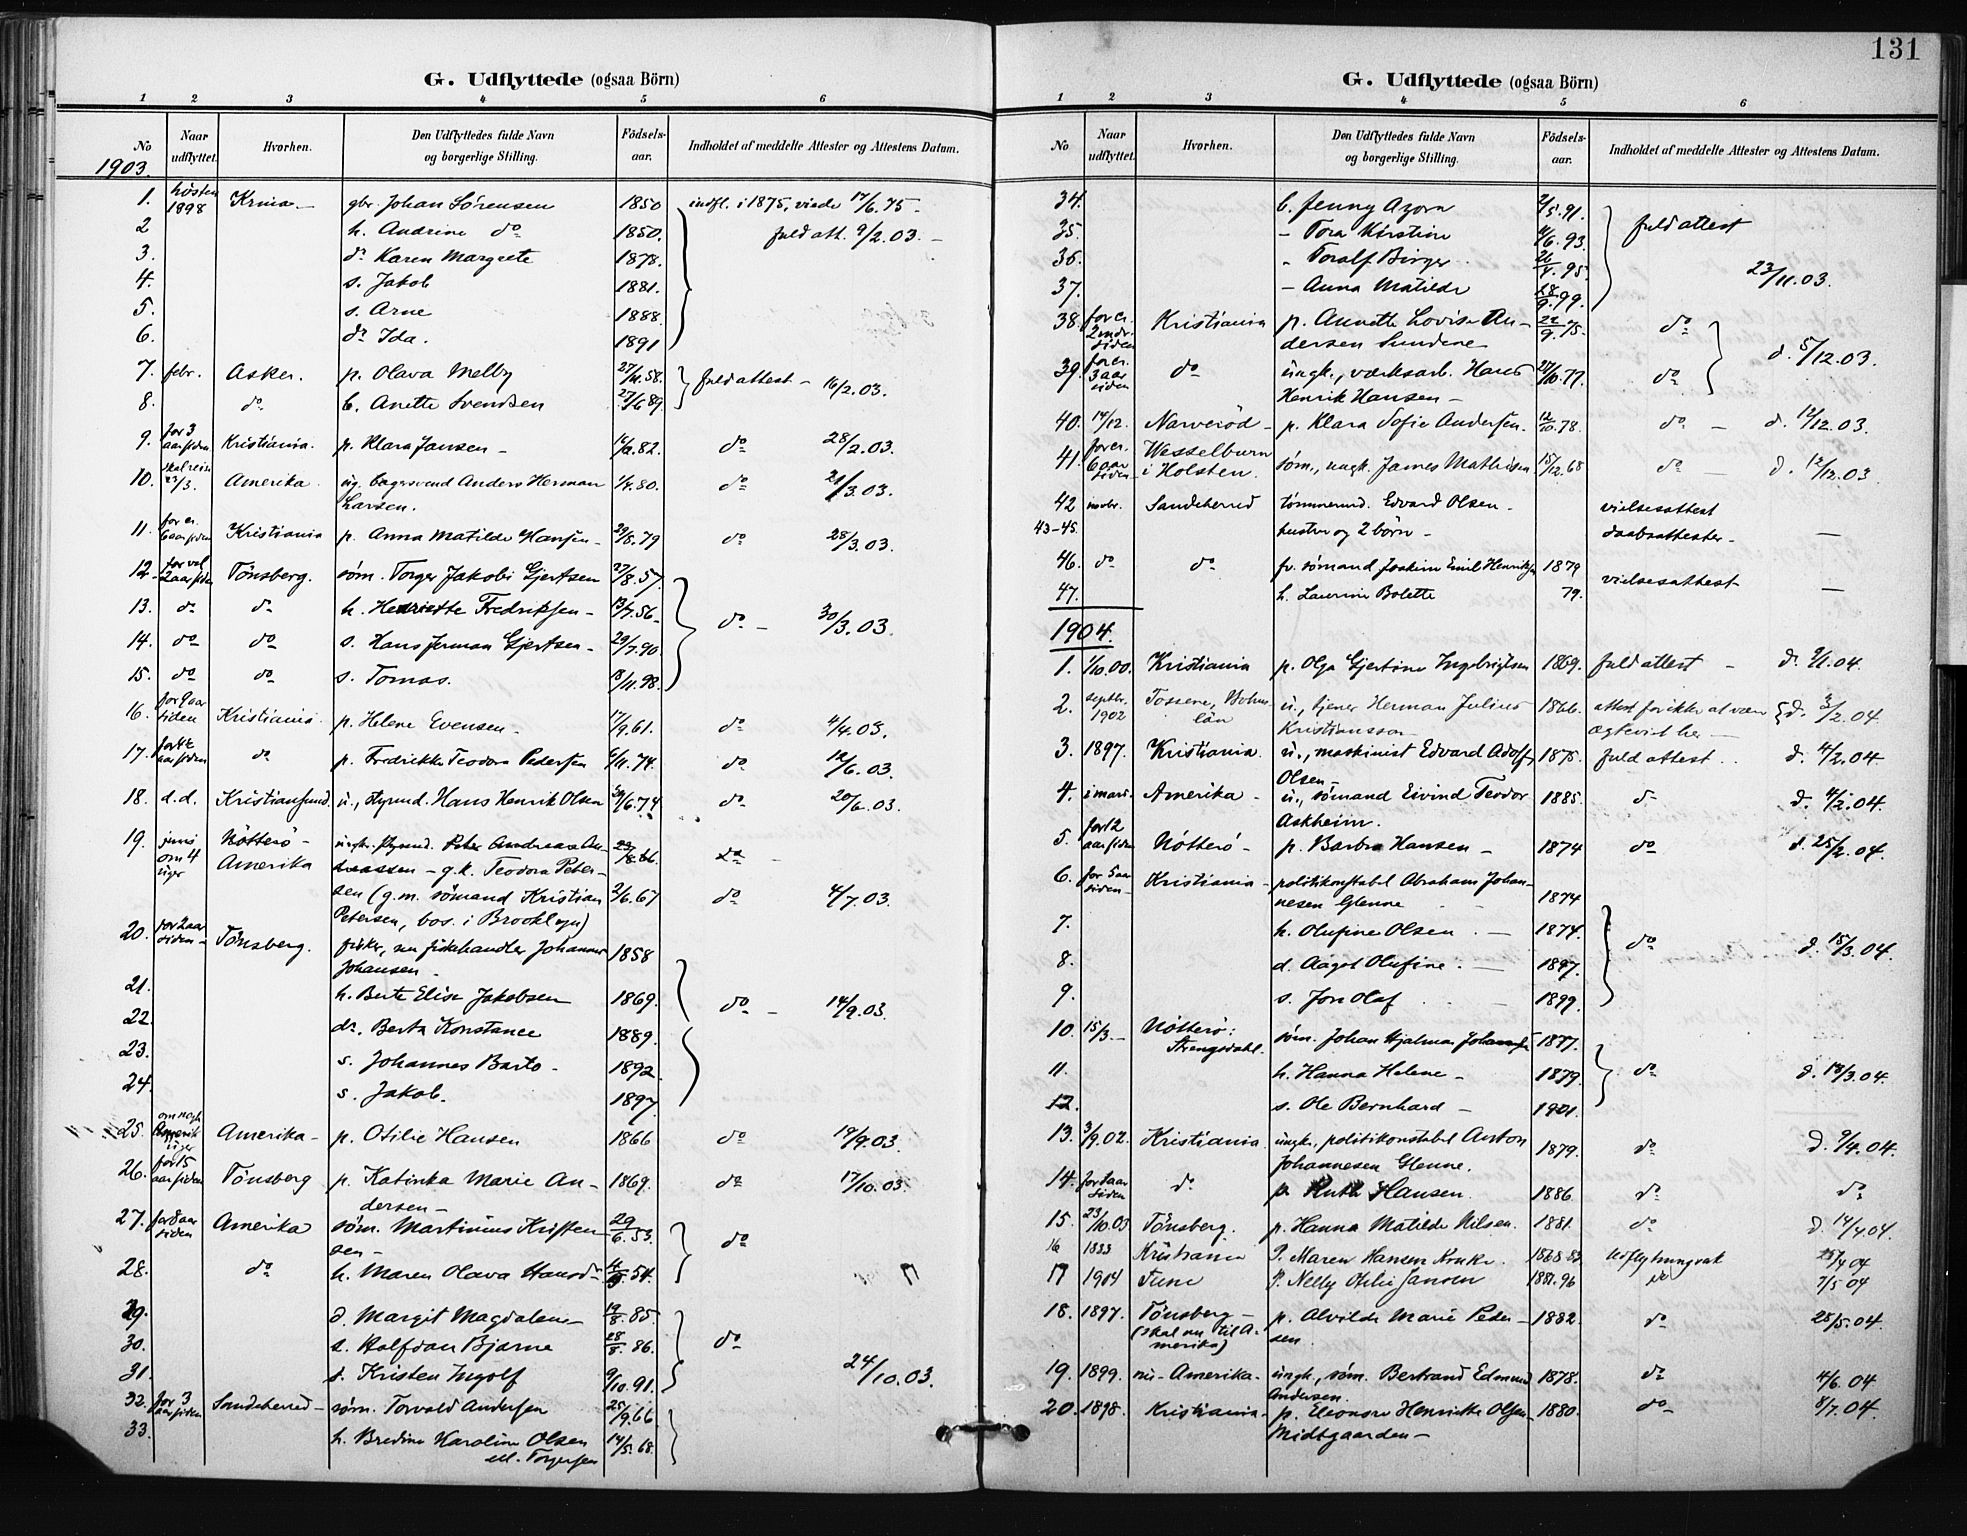 G. Udflyttede (ogsaa Börn)
1 2 3 4 5 6
No Naar udflyttet. Hvorhen. Den Udflyttedes fulde Navn og borgerlige Stilling. Födsels-aar. Indholdet af meddelte Attester og Attestens Datum.
1903.
1. hösten 1898 Krnia. gbr. Johan Sörensen 1850 indfl. i 1875, viede 17/6.75.
2 h. Andrine do 1850. fuld att. 9/2.03.
3. dr. Karen Margrete 1878.
4. s. Jakob 1881.
5. s. Arne 1888.
6. dr. Ida. 1891
7. febr. Asker. p. Olava Melby 27/11.58. fuld attest 16/2.03.
8. do b. Anette Svendsen 27/6 89.
9. for 3 aar siden Kristiania. p. Klara Jansen 82. do 28/2.03.
10. skal reise 27/3. Amerika. ug. bagersvend Anders Herman Larsen. 1/4.80. do 21/3.03.
11. for cr. 6 aar siden Kristiania p. Anna Matilde Hansen 29/8.79 do 28/3.03.
12. for vel 2 aar siden Tönsberg. söm. Torger Jakobi Gjertsen 27/8.57
13. do do h. Henriette Fredriksen 13/7.56 do 30/3.03.
14. do do s. Hans Herman Gjertsen 29/7.90
15. do do s. Tomas. 18/11.98.
16. for 9 aar siden Kristiania. p. Helene Evensen 17/9.61. do 4/4.03.
17. aar siden do p. Fredrikke Teodora Pedersen 6/11.74. do 12/6.03.
18. d.d. Kristiansund. u., styrmd. Hans Henrik Olsen 30/6.74 do 20/6.03.
19. juni om 4 uger Nötterö - Amerika ungk. styrmd. Peter Andreas Andreassen 22/8.66. do
g.k. Teodora Petersen (g.m. sömand Kristian Petersen, bos. i Brooklyn) 2/6.67 do 4/7.03.
20. for 2 aar siden Tönsberg. fisker, nu fiskehandler Johannes Johansen 1858
21. h. Berte Elise Jakobsen 1869. do 14/9.03.
22. dr. Berta Konstance 1889.
23. s. Johannes Barto 1892
24. s. Jakob. 1897
25. Amerika p. Otilie Hansen 1866 do 19/9.03.
26. for 15 aar siden Tönsberg p. Katinka Marie Andersen 1869. do 17/10.03.
27. for 8 aar siden Amerika söm. Martinius Kristensen 29/6.53. do
28. do h. Maren Olava Hansdr 54.
29. d. Margit Magdalene 19/8.85.
30. s. Halfdan Bjarne 28/8.86. do
31. s. Kristen Ingolf 9/10.91. 24/10.03.
32. for 3 aar siden Sandeherred söm. Torvald Andersen 25/9.66
33. h. Bredine Karoline Olsen ell. Torgersen 14/5.68.
131
G. Udflyttede (ogsaa Börn)
1 2 3 4 5 6
No Naar udflyttet. Hvorhen. Den Udflyttedes fulde Navn og borgerlige Stilling. Födsels-aar. Indholdet af meddelte Attester og Attestens Datum.
34. b. Jenny Azora 2/5.91. fuld attest
35. - Tora Kirstine 4/6.93.
36. - Toralf Birger 26/4.95. 23/11.03.
37. - Anna Matilde 28/9.99.
38. for cr. 2 mdr. siden Kristiania p. Annette Lovise Andersen Sundene 22/9.75. do
39. for cr. 3 aar siden do ungk., værksarb. Hans Henrik Hansen 27/10.77. do d. 5/12.03.
40. 14/12. Narveröd p. Klara Sofie Andersen. 12/10.78. do d. 12/12.03.
41. for cr. 6 aar siden Wesselburn i Holsten. söm., ungk. James Mathisen 15/12.68 do d. 12/12.03.
42 novbr. Sandeherred tömmermd. Edvard Olsen vielsesattest
43-45. hustru og 2 börn daabsattester
46. do do fv. sömand Joakim Emil Henriksen 1879 vielsesattest
47. h. Laurine Bolette 79.
1904.
1. 1/10.00. Kristiania p. Olga Gjertine Ingebrigtsen 1869. fuld attest d. 9/1.04.
2. septbr. 1902 Tossene, Bohuslän u., tjener Herman Julius Kristiansson 1866. attest for ikke at være ægteviet her d. 3/2.04.
3. 1897. Kristiania. u., maskinist Edvard Adolf Olsen 1875. fuld attest d. 4/2.04.
4. i mars. Amerika u., sömand Eivind Teodor Askheim. 1885. do d. 4/2.04.
5. for 12 aar siden Nötterö p. Barbra Hansen 1874 do d. 25/2.04.
6. for 5 aar siden Kristiania politikonstabel Abraham Johannesen Glenne 1874
7. h. Olufine Olsen 1874. do d. 15/3.04.
8. d. Aagot Olufine. 1897.
9. s. Jon Olaf 1899.
10. 15/3 Nötterö: Strengsdahl. söm. Johan Hjalmar Johansen 1877.
11. h. Hanna Helene 1879. do d. 18/3.04.
12. s. Ole Bernhard 1901.
13. 3/9.02. Kristiania ungk., politikonstabel Anton Johannesen Glenne. 1879. do d. 9/4.04.
14. siden do p. Ruth Hansen. 1886 do do
15. 23/10.03 Tönsberg. p. Hanna Matilde Nilsen. 1881. do d. 14/4.04.
16 1883 Kristiania P. Maren Hansen 1868 Udflytningsat. 04
17 1904 Tune P. Nelly Otilie Jansen 1881. do 7/5 04
18. 1897. Tönsberg (skal nu til Amerika) p. Alvilde Marie Pedersen 1882. do 28/5.04.
19. 1899. nu Amerika ungk., söm. Bertrand Edmund Andersen. 1878. do 4/6.04
20. 1898. Kristiania. p. Eleonore Henriette Olsen Midtgaarden 1880. do 8/7.04.